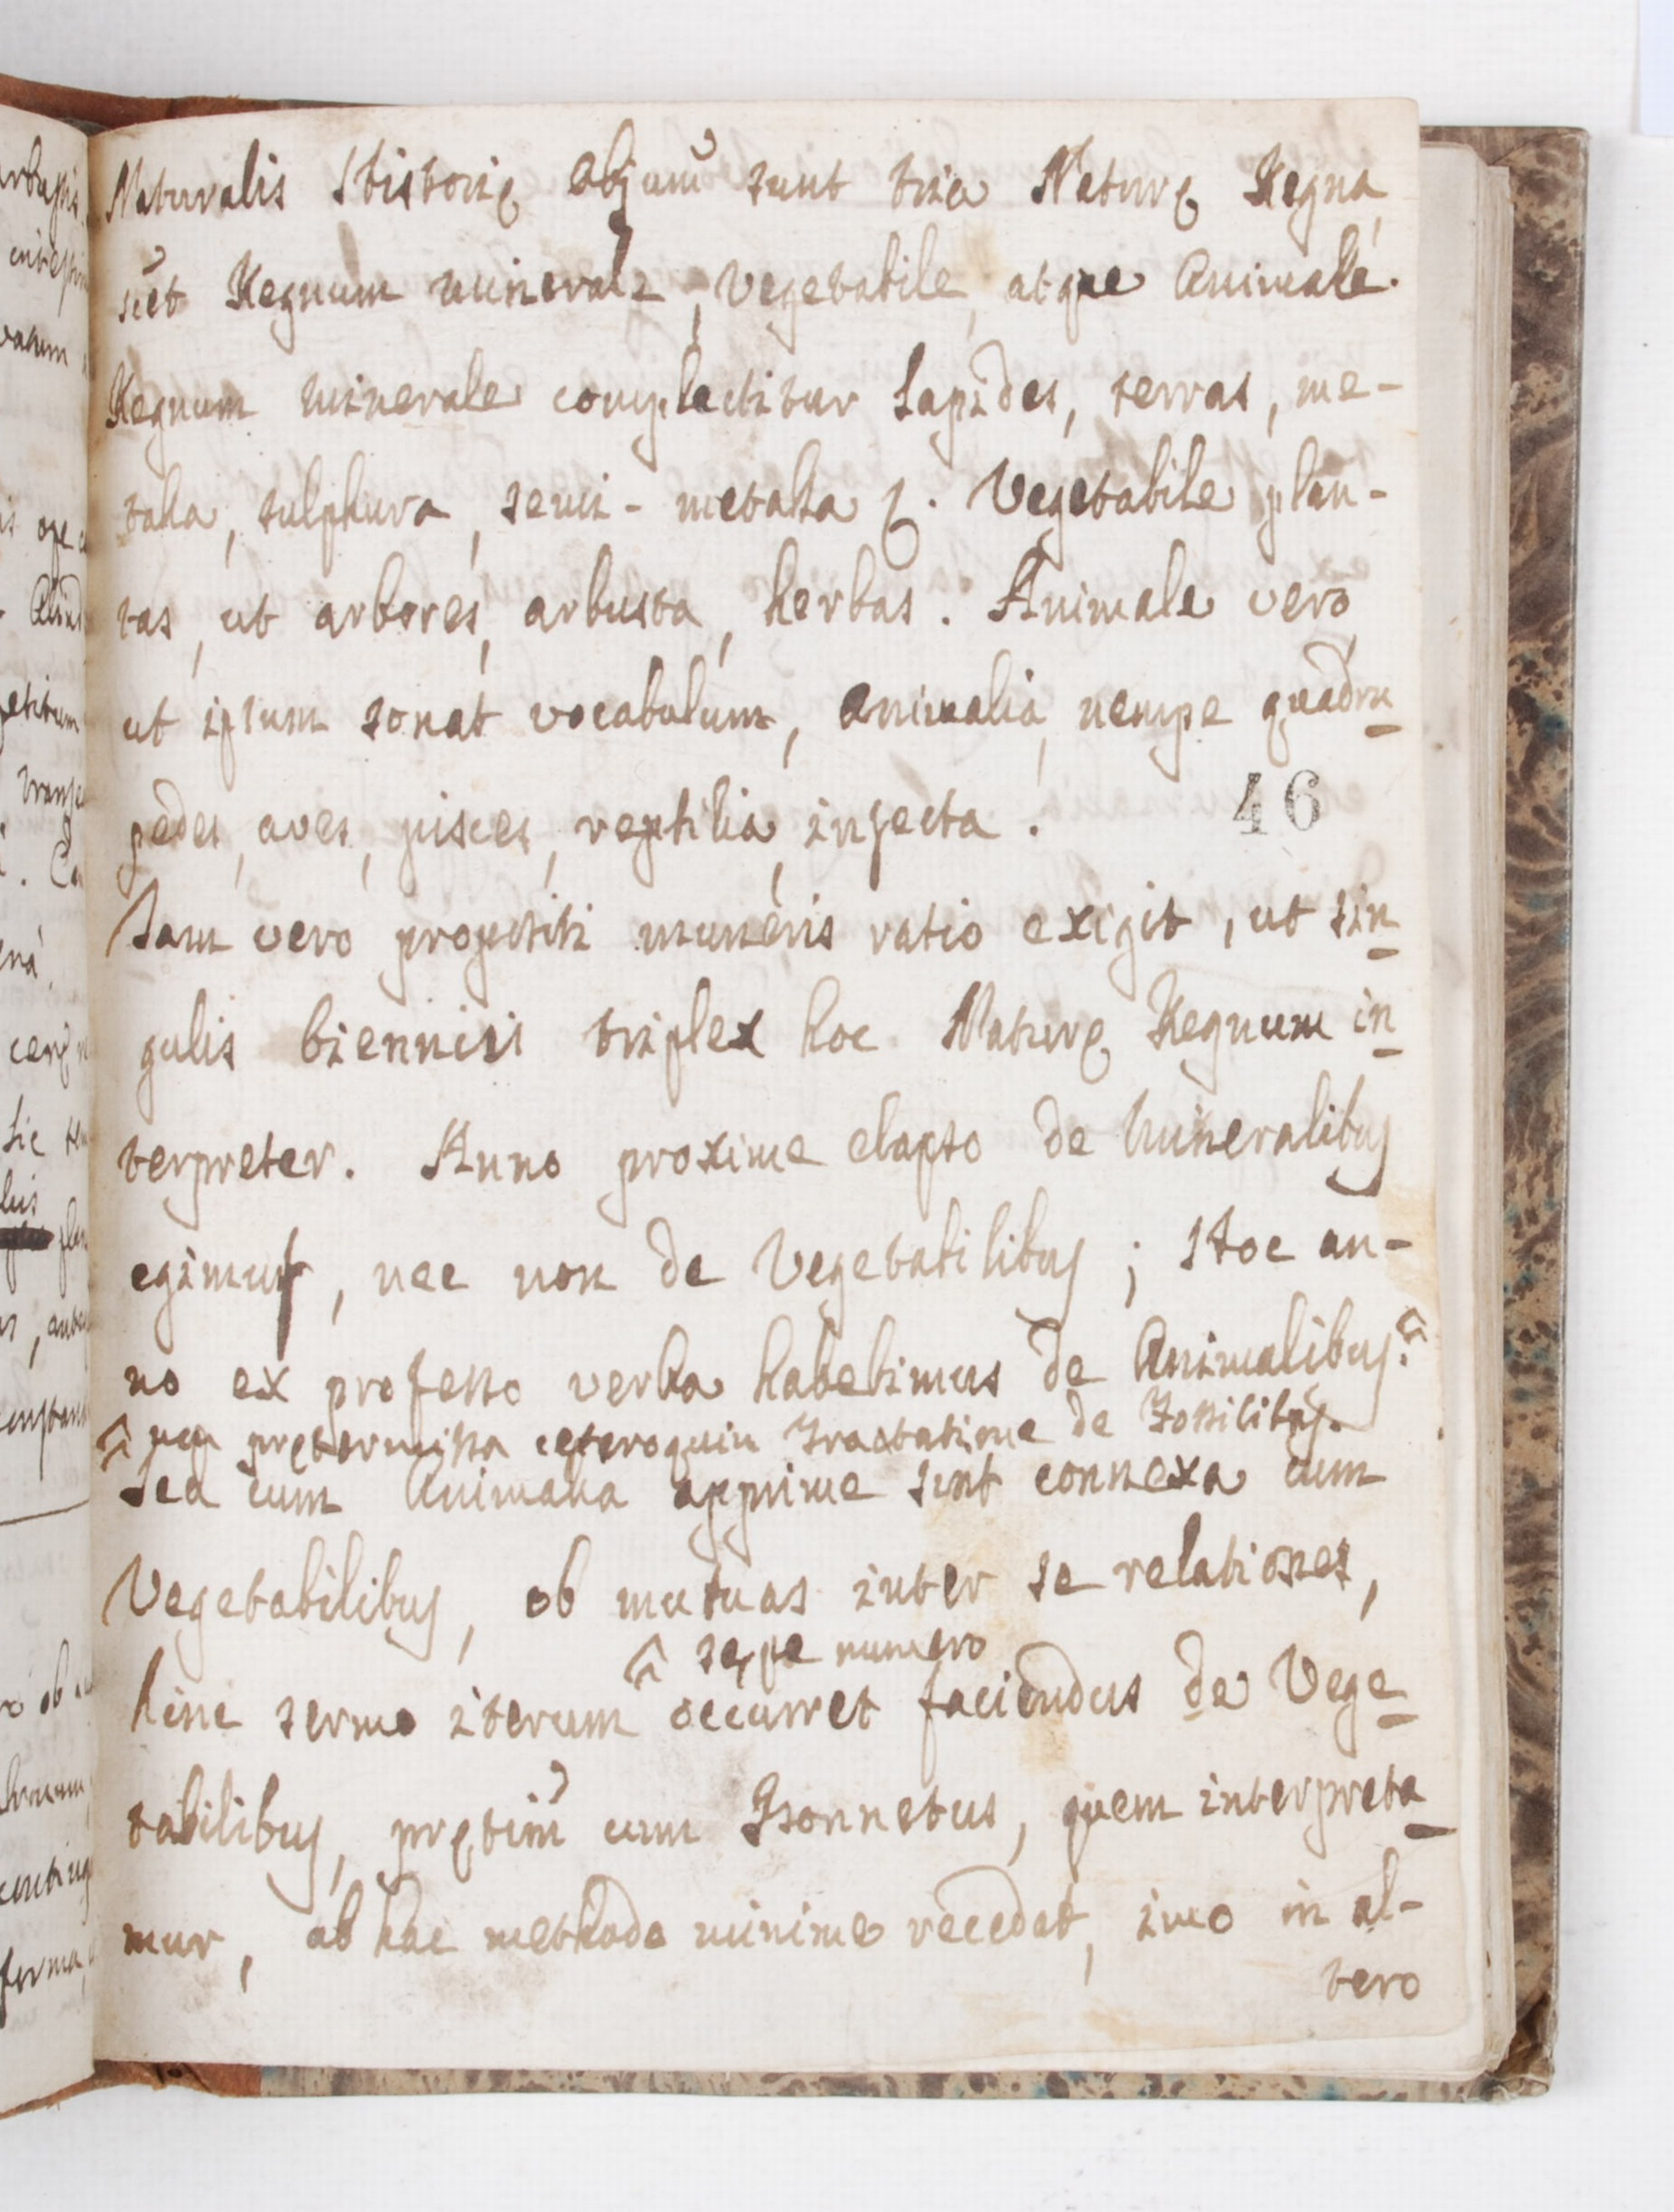 Naturalis Historię Objum̃ sunt tria Naturę Regna,
scet Regnum minerale, Vegetabile, atque Animale.
Regnum minerale complectitur Lapides, terras, me-
talla, sulphura, semi-metalla &. Vegetabile plan-
tas, ut arbores, arbusta, herbas. Animale vero,
ut ipsum sonat vocabulum, animalia, nempe quadru-
pedes, aves, pisces, reptilia, insecta.
46
Jam vero propositi muneris ratio exigit, ut sin-
gulis bienniis triplex hoc Naturę Regnum in-
terpreter. Anno proxime elapso de Mineralibus
egimus, nec non de Vegetabilibus; Hoc an-
no ex professo verba habebimus de Animalibus.
non prętermissa ceteroquin Tractatione de Fossilibus.
Sed cum Animalia apprime sint connexa cum
Vegetabilibus, ob mutuas inter se relationes,
sępe numero
hinc sermo iterum occurret faciendus de Vege-
tabilibus, pręstim̃ cum Bonnetus, quem interpreta-
mur, ab hac methodo minime recedat, imo in al-
tero